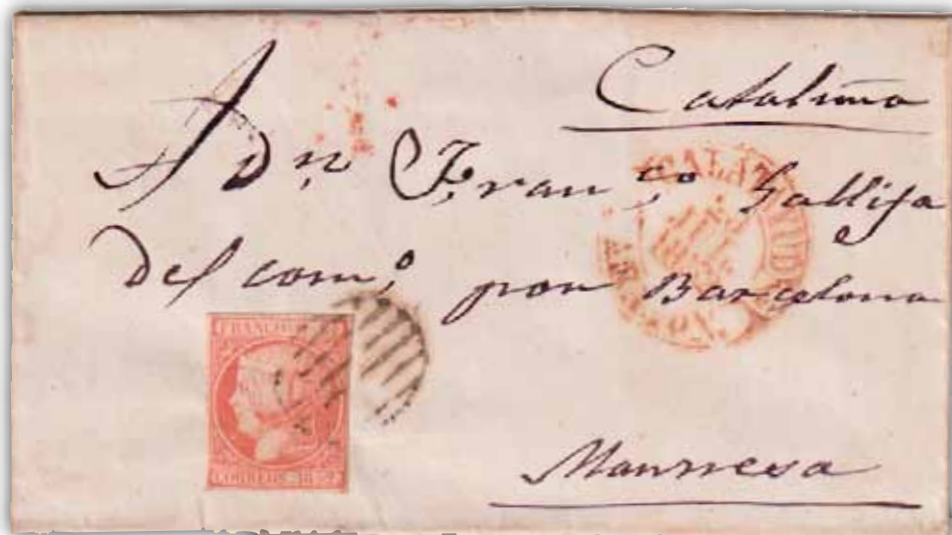 Cataluña
A Dn Franco Gallifa
del como por Barcelona
Manresa
CALATAYUD
ARAGON.
FRANCO
CORREOS. 1852